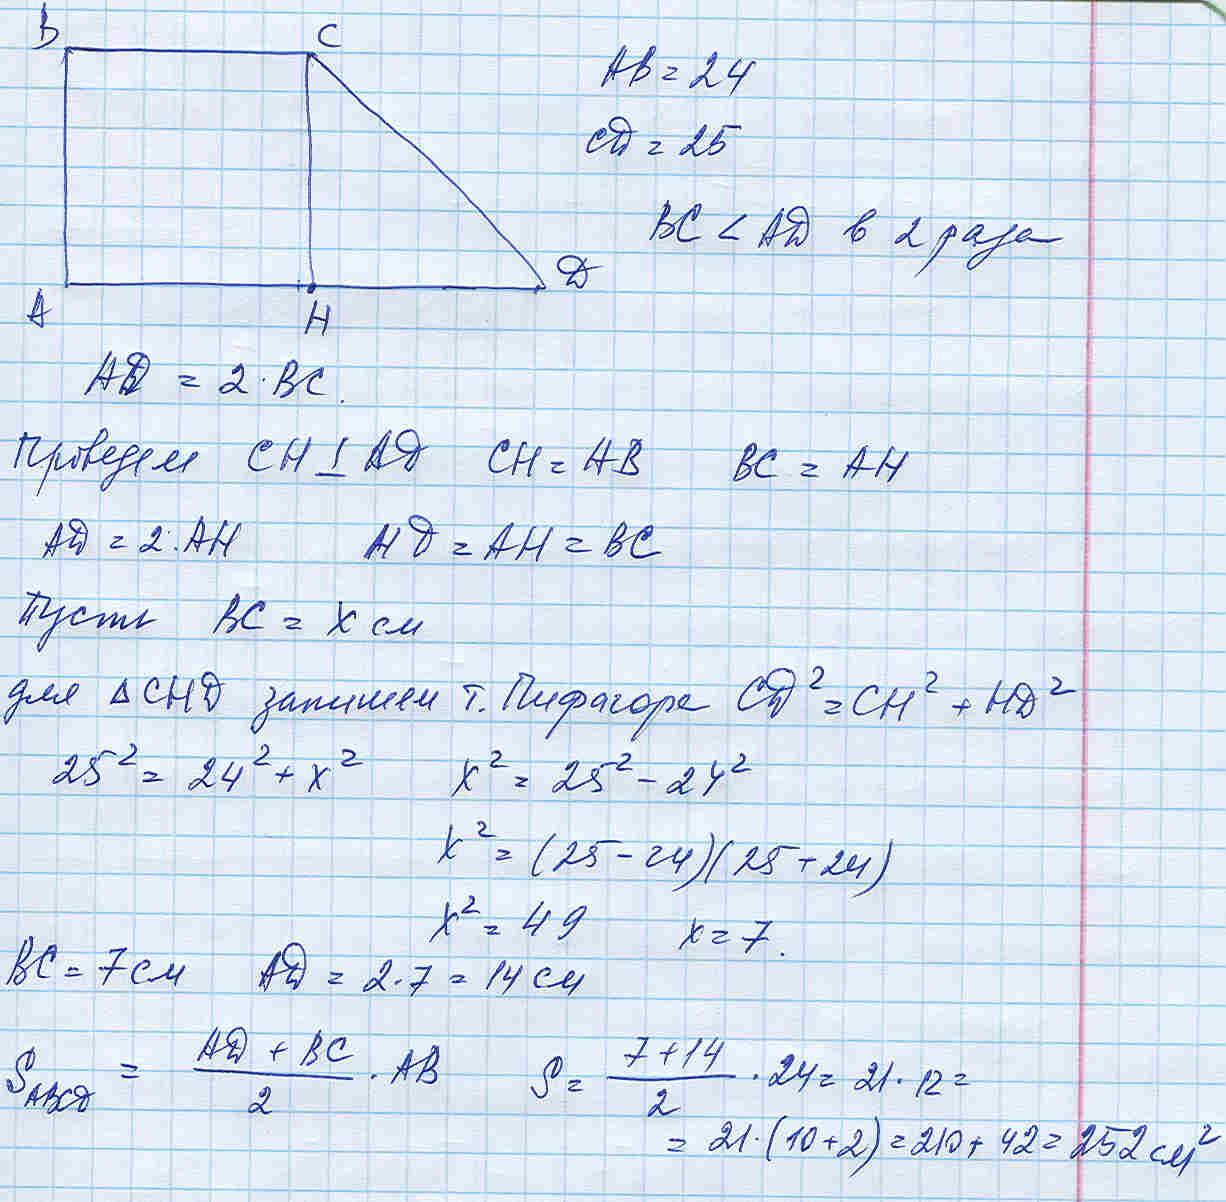 B C
AB = 24
CD = 25
BC < AD в 2 раза
D
A H
AD = 2·BC.
Проведем CH ⊥ AD CH = AB BC = AH
AD = 2·AH HD = AH = BC
Пусть BC = x см
для ΔCHD запишем т. Пифагора CD² = CH² + HD²
25² = 24² + x² x² = 25² - 24²
x² = (25 - 24)(25 + 24)
x² = 49 x = 7.
BC = 7 см AD = 2·7 = 14 см
S_ABCD = (AD + BC)/2 · AB S = (7 + 14)/2 · 24 = 21·12 =
= 21·(10+2) = 210 + 42 = 252 см²